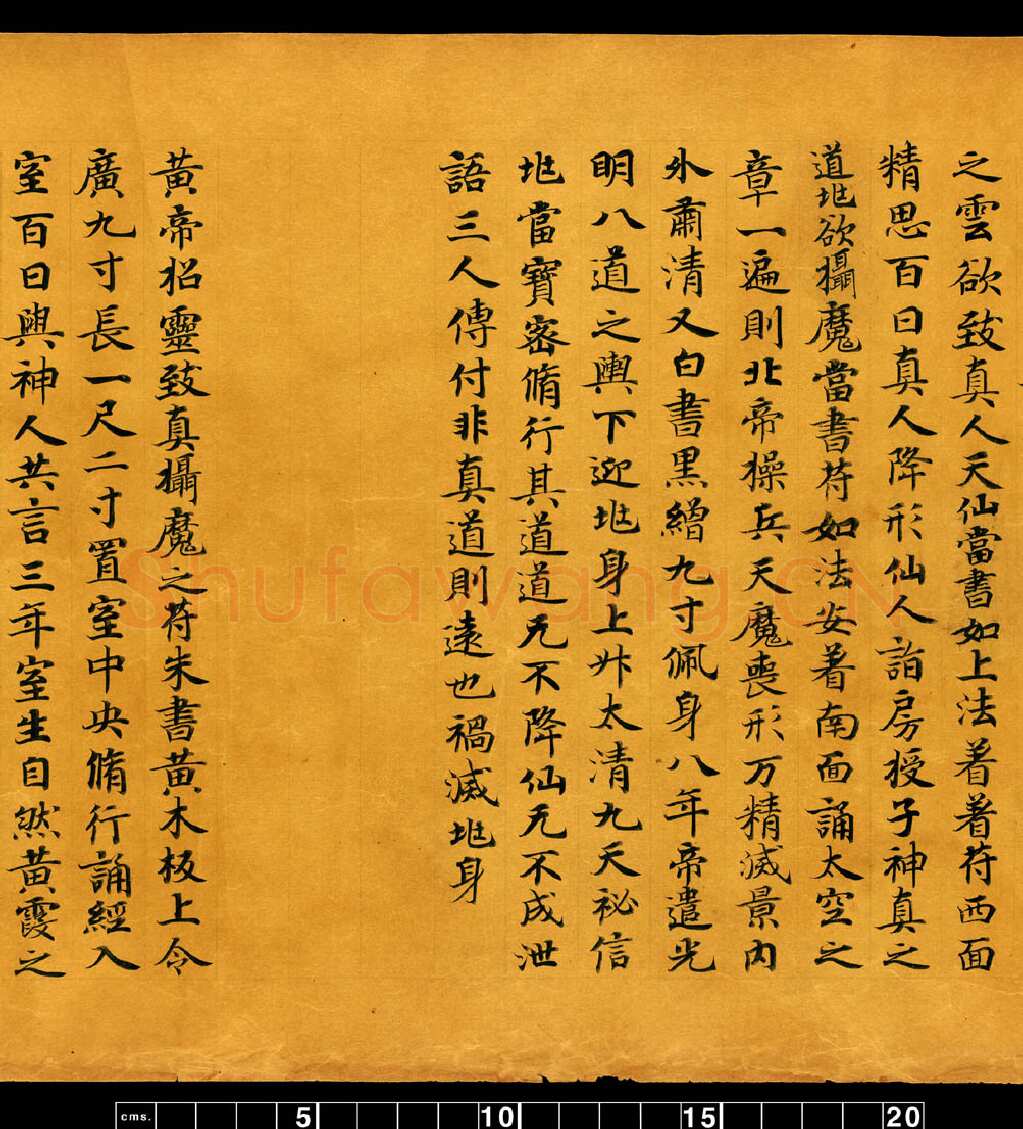 之雲欲致真人天仙當書如上法着著苻西面
精思百日真人降形仙人詣房授子神真之
道兆欲攝魔當書苻如法安着南面誦太空之
章一遍則北帝操兵天魔喪形万精滅景內
外肅清又白書黑繒九寸佩身八年帝遣光
明八道之輿下迎兆身上升太清九天祕信
兆當寶密脩行其道道无不降仙无不成泄
語三人傳付非真道則遠也禍滅兆身
黃帝招靈致真攝魔之苻朱書黃木板上令
廣九寸長一尺二寸置室中央脩行誦經入
室百日與神人共言三年室生自然黃霞之
Shufawang.CN
cms. 5 10 15 20